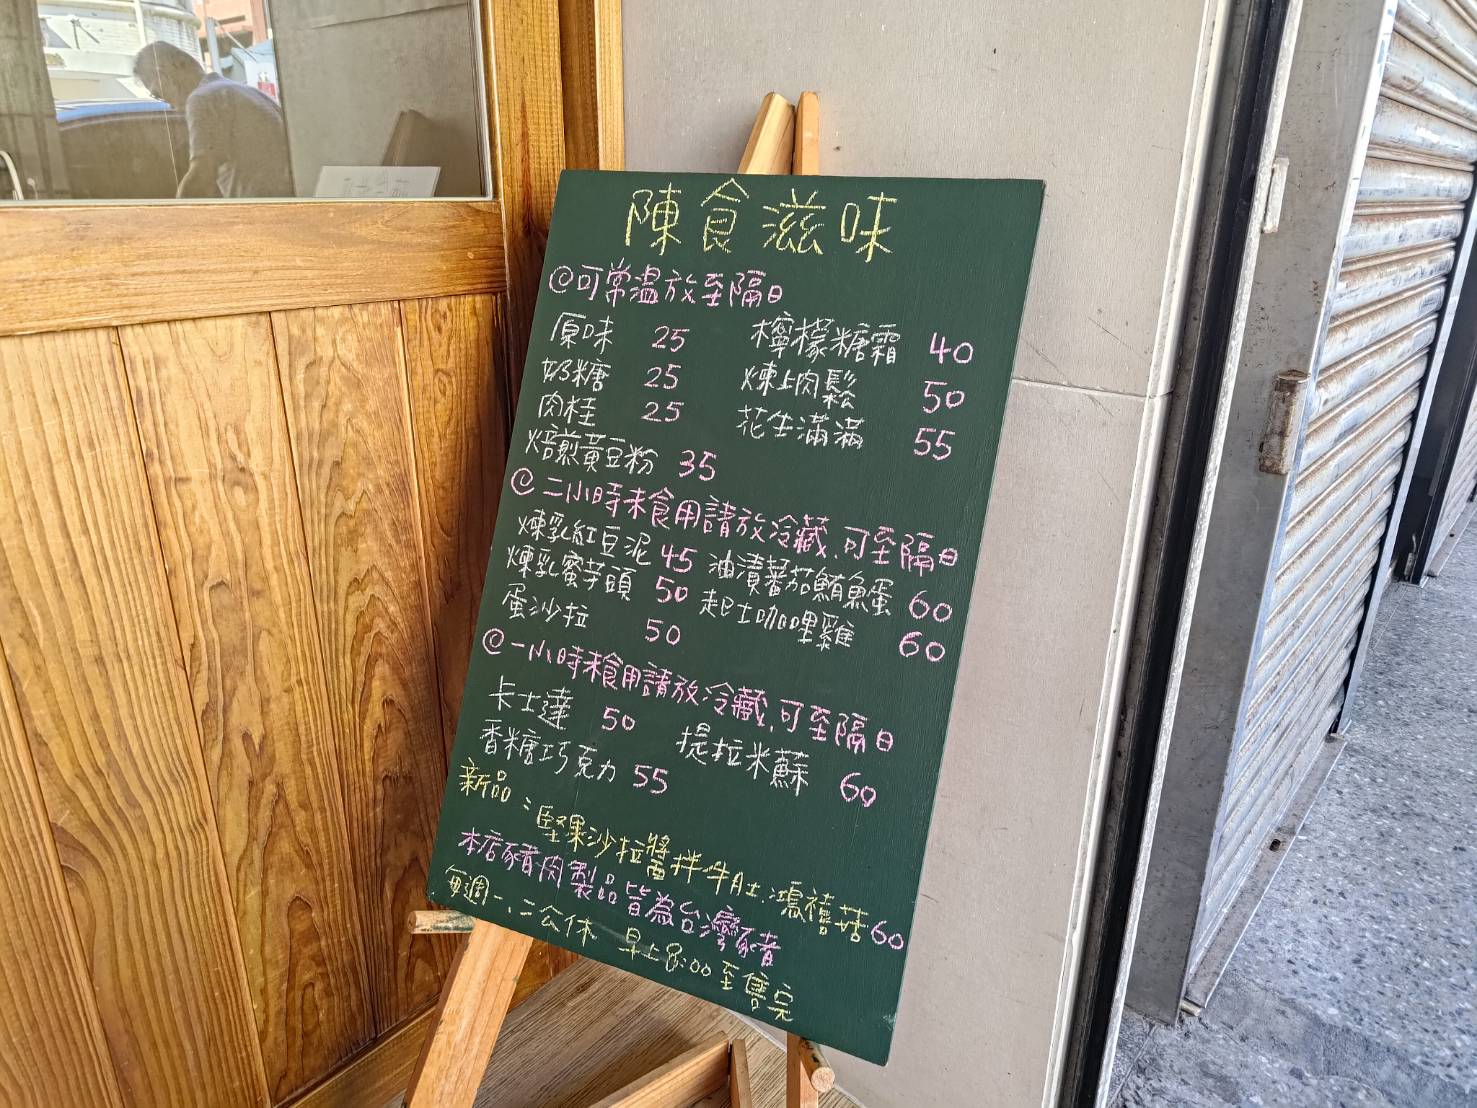 陳食滋味
@可常温放至隔日
原味 25 檸檬糖霜 40
奶糖 25 煉上肉鬆 50
肉桂 25 花生滿滿 55
焙煎黃豆粉 35
@二小時未食用請放冷藏、可至隔日
煉乳紅豆泥 45 油漬蕃茄鮪魚蛋 60
煉乳蜜芋頭 50 起士咖哩雞 60
蛋沙拉 50
@一小時未食用請放冷藏、可至隔日
卡士達 50 提拉米蘇 60
香糖巧克力 55
新品：堅果沙拉醬拌牛肚、鴻禧菇60
本店豬肉製品皆為台灣豬
每週一、二公休 早上8:00至售完